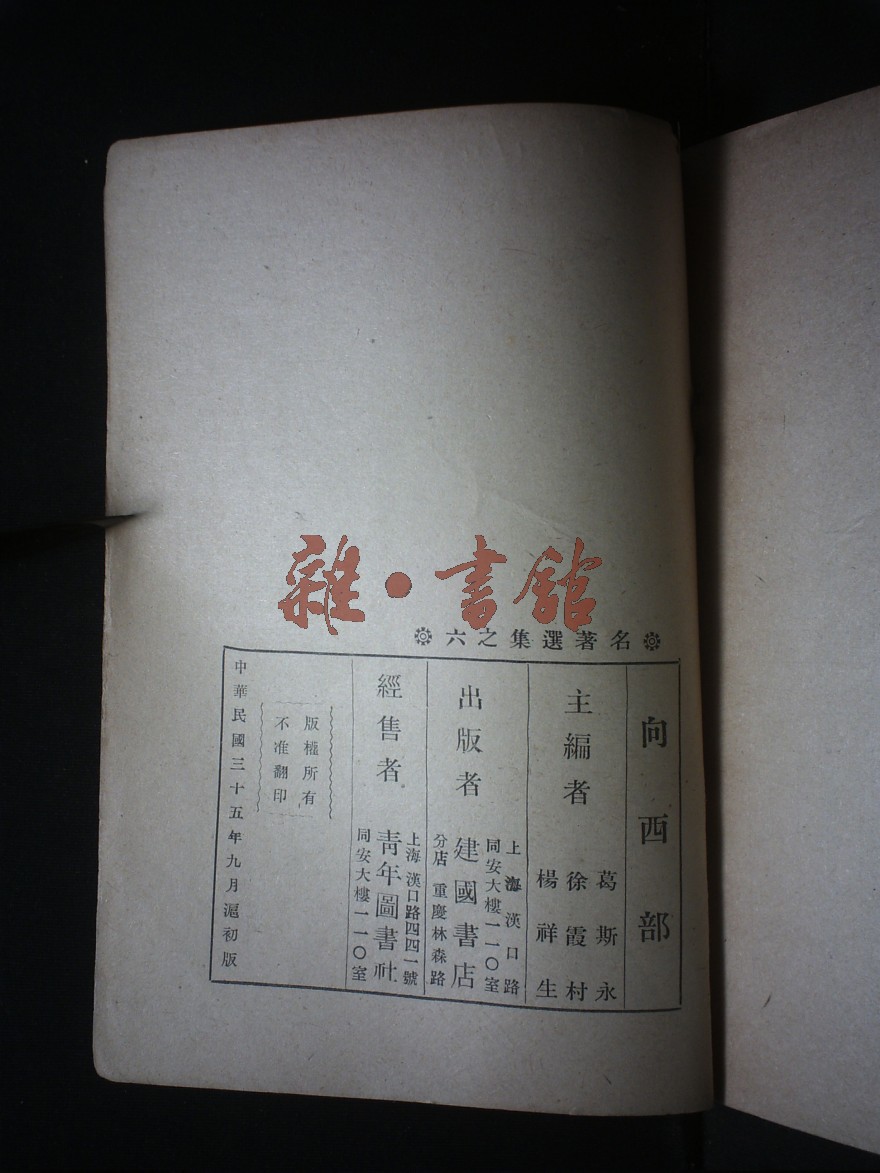 雜·書館
名著選集之六
向西部
主編者
葛斯永
徐霞村
楊祥生
出版者
上海漢口路
同安大樓一一〇室
建國書店
分店 重慶林森路
經售者
上海漢口路四四一號
青年圖書社
同安大樓一一〇室
版權所有
不准翻印
中華民國三十五年九月滬初版